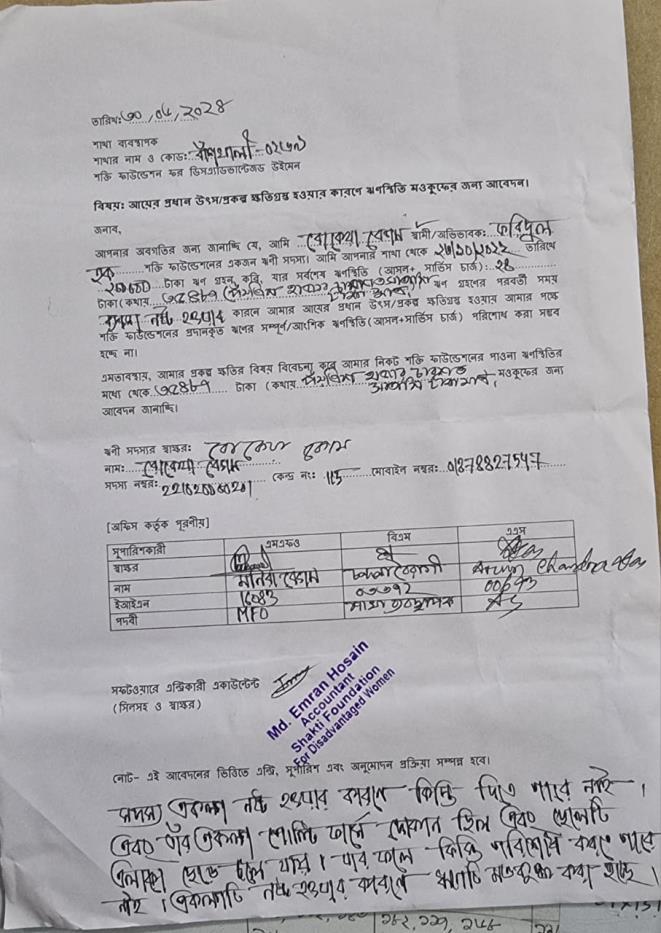 তারিখঃ ৩০/০৬/২০২৪
শাখা ব্যবস্থাপক
শাখার নাম ও কোডঃ বাঁশখালী-০২৬৩
শক্তি ফাউন্ডেশন ফর ডিসএ্যাডভান্টেজড উইমেন
বিষয়ঃ আয়ের প্রধান উৎস/প্রকল্প ক্ষতিগ্রস্ত হওয়ার কারণে ঋণস্থিতি মওকুফের জন্য আবেদন।
জনাব,
আপনার অবগতির জন্য জানাচ্ছি যে, আমি রোকেয়া বেগম স্বামী/অভিভাবকঃ ফরিদুল
হক শক্তি ফাউন্ডেশনের একজন ঋণী সদস্য। আমি আপনার শাখা থেকে ২৭/১০/২০২২ তারিখে
টাকা ঋণ গ্রহন করি, যার সর্বশেষ ঋণস্থিতি (আসল+ সার্ভিস চার্জ)ঃ
টাকা (কথায় হাজার ঋণ গ্রহণের পরবর্তী সময়
নষ্ট হওয়ার কারনে আমার আয়ের প্রধান উৎস/প্রকল্প ক্ষতিগ্রস্ত হওয়ায় আমার পক্ষে
শক্তি ফাউন্ডেশনের প্রদানকৃত ঋণের সম্পূর্ণ/আংশিক ঋণস্থিতি (আসল+সার্ভিস চার্জ) পরিশোধ করা সম্ভব
হচ্ছে না।
এমতাবস্থায়, আমার প্রকল্প ক্ষতির বিষয় বিবেচনা করে আমার নিকট শক্তি ফাউন্ডেশনের পাওনা ঋণস্থিতির
মধ্যে থেকে টাকা (কথায় হাজার মওকুফের জন্য
আবেদন জানাচ্ছি।
ঋণী সদস্যর স্বাক্ষরঃ রোকেয়া বেগম
নামঃ রোকেয়া বেগম
সদস্য নম্বরঃ কেন্দ্র নংঃ 115 মোবাইল নম্বরঃ 01878827547
[অফিস কর্তৃক পূরনীয়]
সুপারিশকারী এমএফও বিএম এএস
স্বাক্ষর
নাম মনিরা বেগম Arun Chandra
ইআইএন 16083 ০৩৩৭২ 00693
পদবী MFO শাখা ব্যবস্থাপক AS
সফটওয়ারে এন্ট্রিকারী একাউন্টেন্ট
(সিলসহ ও স্বাক্ষর)
Md. Emran Hosain
Accountant
Shakti Foundation
For Disadvantaged Women
নোট- এই আবেদনের ভিত্তিতে এন্ট্রি, সুপারিশ এবং অনুমোদন প্রক্রিয়া সম্পন্ন হবে।
সদস্য প্রকল্প নষ্ট হওয়ার কারণে কিস্তি দিতে পারে নাই।
এবং তাঁর প্রকল্প পোল্ট্রি ফার্ম দোকান ছিল এবং ছেলেটি
এলাকা ছেড়ে চলে যায়। যার ফলে কিস্তি পরিশোধ করতে পারে
নাই। প্রকল্পটি নষ্ট হওয়ার কারণে ঋণটি মওকুফ করা হচ্ছে।